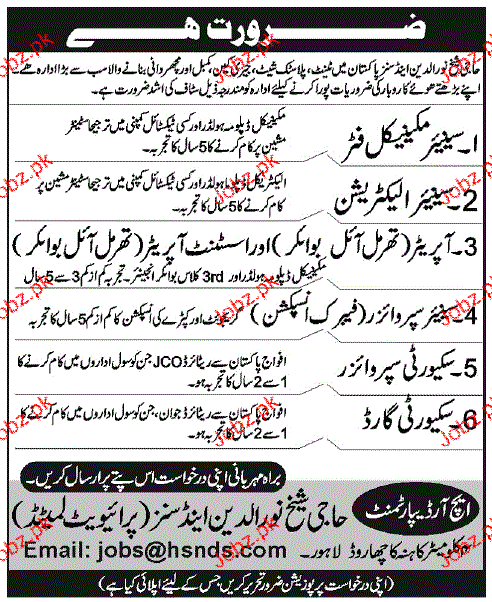 ضرورت ھے
حاجی شیخ نورالدین اینڈ سنز پاکستان میں ٹینٹ، پلاسٹک شیٹ، جیری کین، کمبل اور مچھردانی بنانے والا سب سے بڑا ادارہ ھے
اپنے بڑھتے ھوئے کاروبار کی ضروریات پورا کرنے کیلئے ادارہ کو مندرجہ ذیل سٹاف کی اشد ضرورت ھے۔
1۔ سینیئر مکینیکل فٹر
مکینیکل ڈپلومہ ہولڈر اور کسی ٹیکسٹائل کمپنی میں ترجیحا سٹینٹر
مشین پر کام کرنے کا 5 سال کا تجربہ۔
2۔ سینیئر الیکٹریشن
الیکٹریکل ڈپلومہ ہولڈر اور کسی ٹیکسٹائل کمپنی میں ترجیحا سٹینٹر مشین پر
کام کرنے کا 5 سال کا تجربہ۔
3۔ آپریٹر (تھرمل آئل بوائلر) اور اسسٹنٹ آپریٹر (تھرمل آئل بوائلر)
مکینیکل ڈپلومہ ہولڈر اور 3rd کلاس بوائلر انجینئر۔ تجربہ کم از کم 3 سے 5 سال
4۔ سینئر سپروائزر (فیبرک انسپکشن)
گریجویٹ اور کپڑے کی انسپکشن کا کم از کم 5 سال کا تجربہ
5۔ سکیورٹی سپروائزر
افواج پاکستان سے ریٹائرڈ JCO جن کو سول اداروں میں کام کرنے کا
1 سے 2 سال کا تجربہ ہو۔
6۔ سکیورٹی گارڈ
افواج پاکستان سے ریٹائرڈ جوان، جن کو سول اداروں میں کام کرنے کا
1 سے 2 سال کا تجربہ ہو۔
براہ مہربانی اپنی درخواست اس پتے پر ارسال کریں۔
ایچ آر ڈیپارٹمنٹ
حاجی شیخ نورالدین اینڈ سنز (پرائیویٹ لمیٹڈ)
کلومیٹر کاہنہ کاچھا روڈ لاہور۔ Email: jobs@hsnds.com
(اپنی درخواست پر پوزیشن ضرور تحریر کریں جس کے لیئے اپلائی کیا ہے)